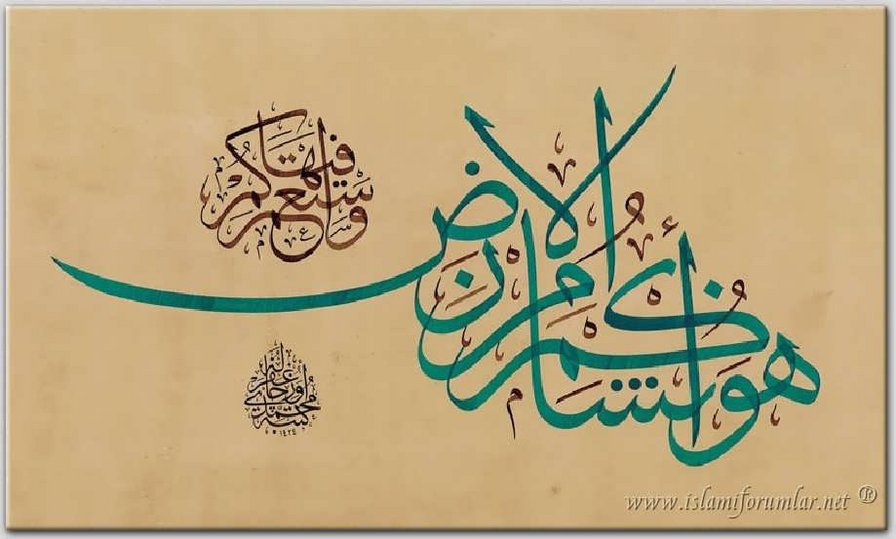 هُوَ أَنْشَأَكُمْ مِنَ الْأَرْضِ
وَاسْتَعْمَرَكُمْ فِيهَا
كتبه محمد
١٤٢٤
www.islamiforumlar.net ®